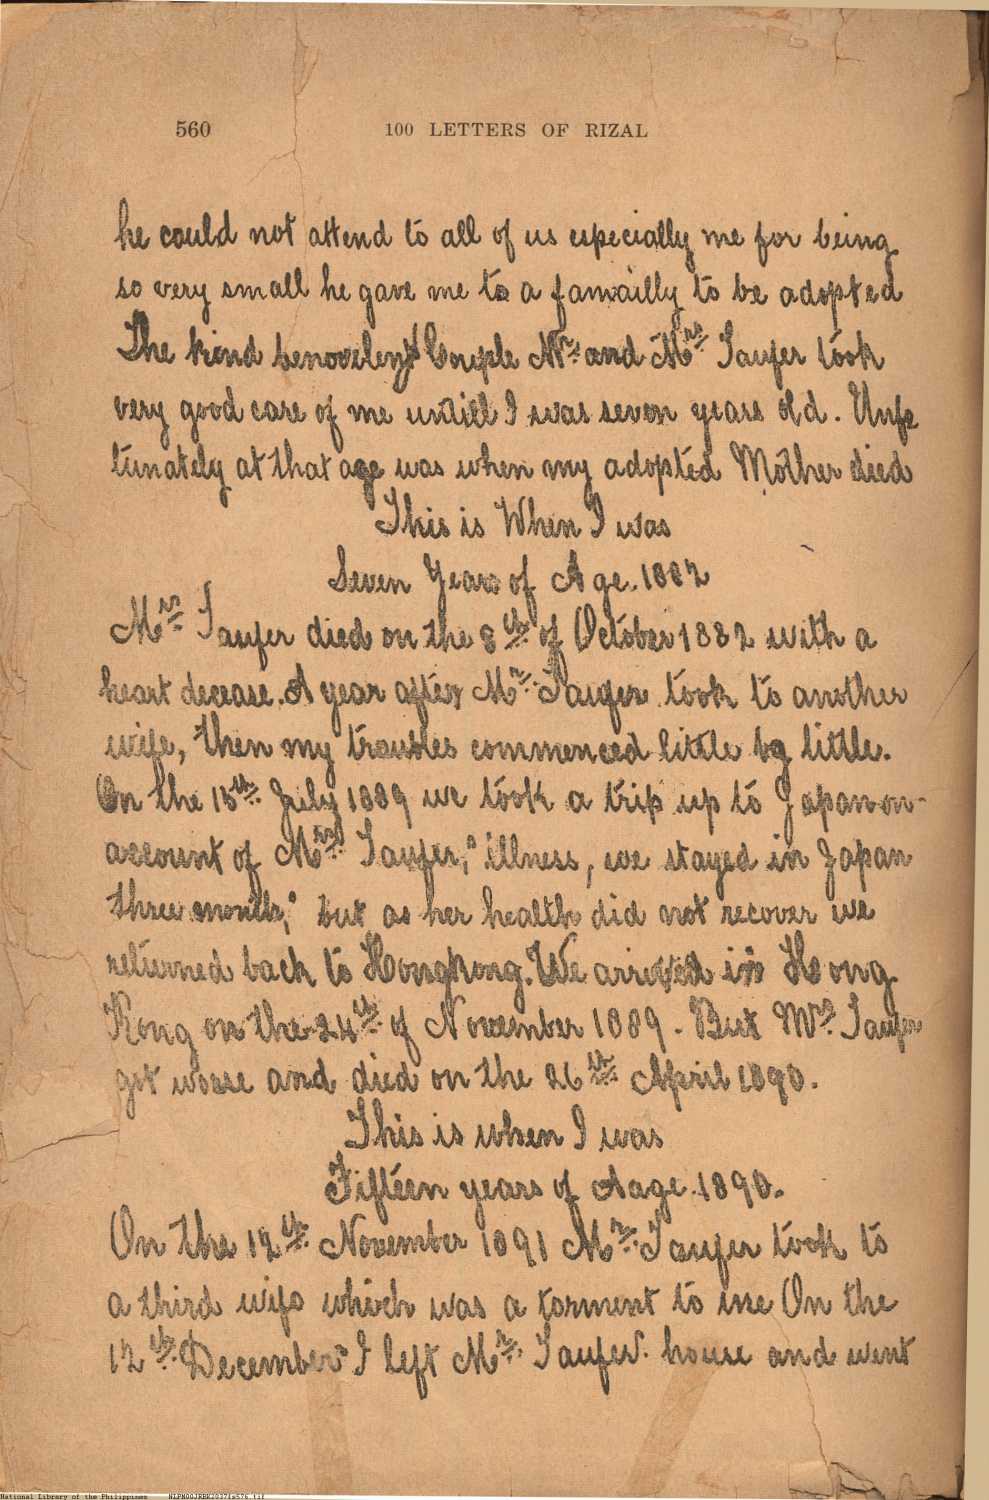 560 100 LETTERS OF RIZAL
he could not attend to all of us especially me for being
so very small he gave me to a famailly to be adopted
The kind benovelent Couple Mr. and Mrs. Taufer took
very good care of me untill I was seven years old. Unfo
tunately at that age was when my adopted Mother died
This is When I was
Seven Years of Age. 1882
Mrs Taufer died on the 8th of October 1882 with a
heart decease. A year after Mr. Taufer took to another
wife, then my troubles commenced little by little.
On the 15th. July 1889 we took a trip up to Japan on-
account of Mrs. Taufer," illness, we stayed in Japan
three month," but as her health did not recover we
returned back to Hongkong. We arrived in Hong
Kong on the 24th. of November 1889. But Mrs. Taufer
got worse and died on the 26th April 1890.
This is when I was
Fifteen years of Aage. 1890.
On the 12th. November 1891 Mr. Taufer took to
a third wife which was a torment to me On the
12th. December" I left Mr. Taufer. house and went
National Library of the Philippines